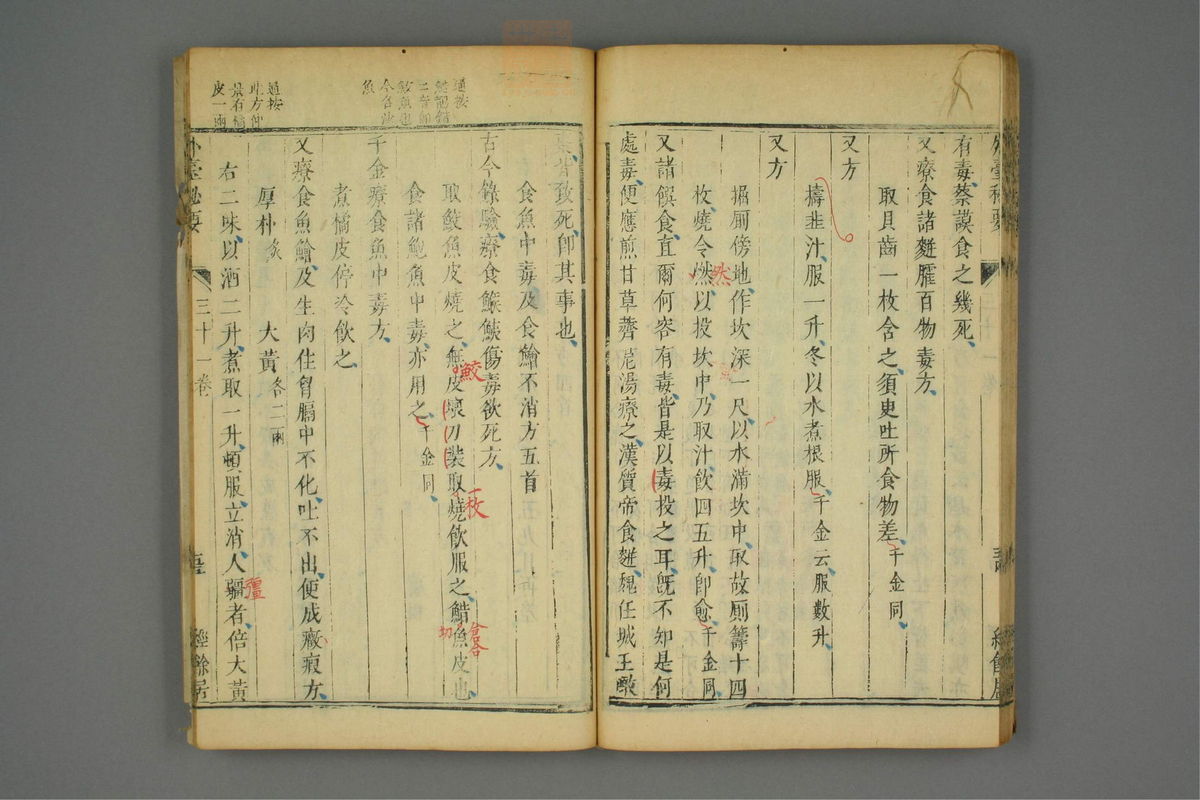 有毒蔡謨食之幾死
又療食諸𩱡臛百物毒方
取貝齒一枚含之須臾吐所食物差千金同
又方
擣韭汁服一升冬以水煮根服千金云服數升
又方
掘厠傍地作坎深一尺以水滿坎中取故厠籌十四
枚燒令燃以投坎中乃取汁飲四五升即愈千金同
然
又諸饌食直爾何容有毒皆是以毒投之耳旣不知是何
處毒便應煎甘草薺苨湯療之漢質帝食𩱡魏任城王啖
棗皆致死即其事也
食魚中毒及食鱠不消方五首
古今錄驗療食鯸鮧傷毒欲死方
取鮫魚皮燒之無皮壞刀裝取燒飲服之䱜魚皮也
鮫
一枚
倉各
切
食諸鮑魚中毒亦用之千金同
千金療食魚中毒方
煮橘皮停冷飲之
又療食魚鱠及生肉住胷膈中不化吐不出便成癥瘕方
厚朴炙 大黃各二兩
右二味以酒二升煮取一升頓服立消人彊者倍大黃
彊
外臺秘要 三十一卷 經餘居